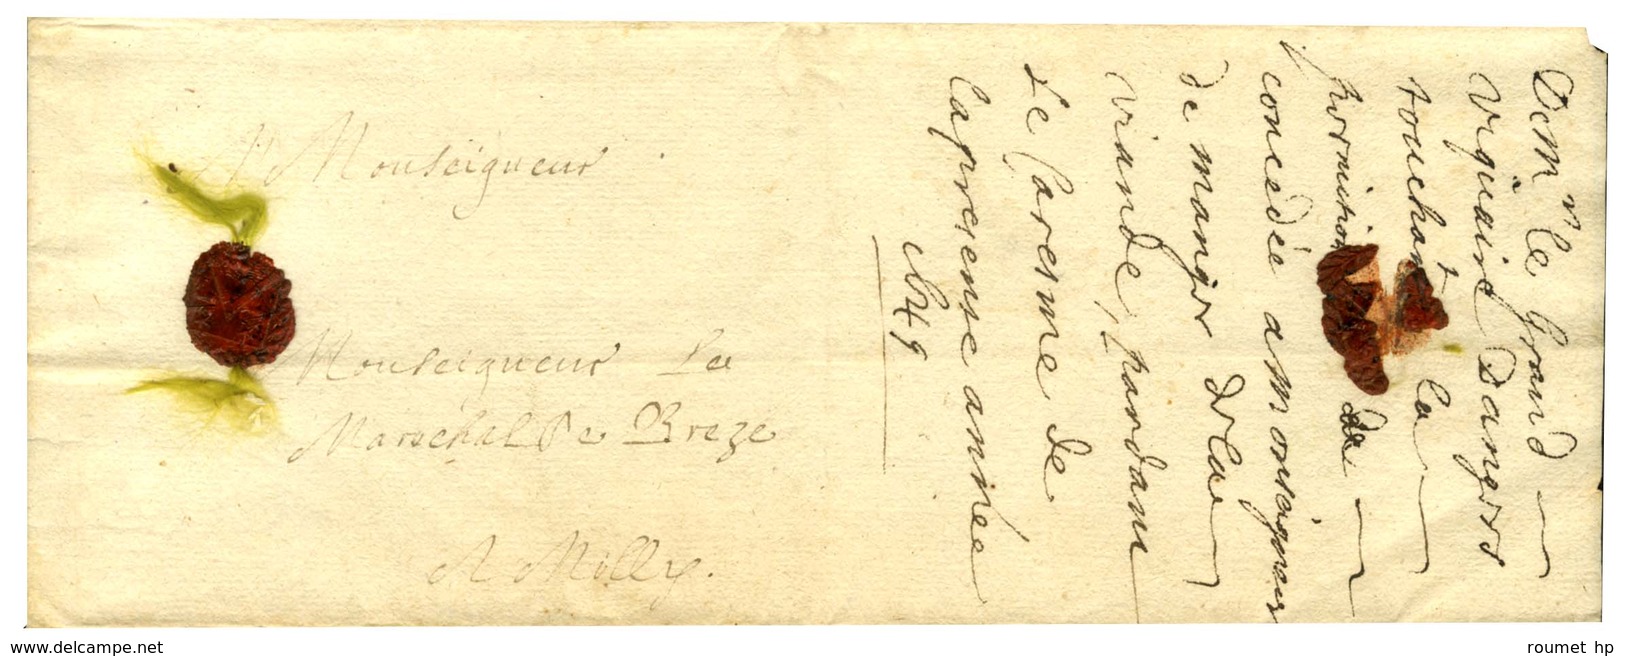 A Monseigneur
Monseigneur Le
Mareschal De Breze
A Milly.
De mr le Grand
Viquaire Dangers
touchant la
permition de
concedée a monseigneur
de manger de la
viande, pandant
Le Caresme de
la presense année
1649
www.delcampe.net
roumet hp